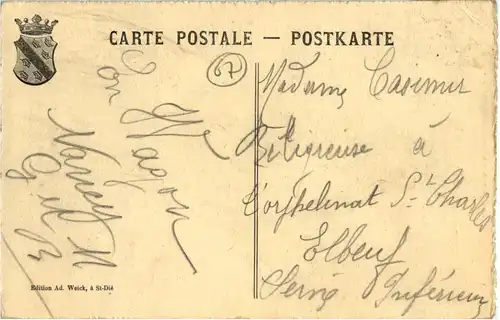 CARTE POSTALE — POSTKARTE
67
En Wagon
Nancy
Madame Casimir
Religieuse à
L'orphelinat St Charles
Elbeuf
Seine Inférieure
Edition Ad. Weick, à St-Dié